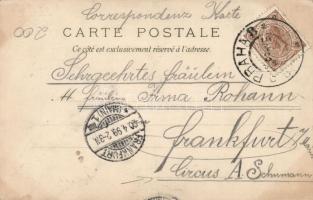 Correspondenz Karte
200
CARTE POSTALE
Ce côté est exclusivement réservé à l'adresse.
PRAHA
Sehrgeehrtes fräulein
fräulein Irma Rohann
FRANKFURT
(MAIN) 1
4.99
frankfurt
Circus A. Schumann